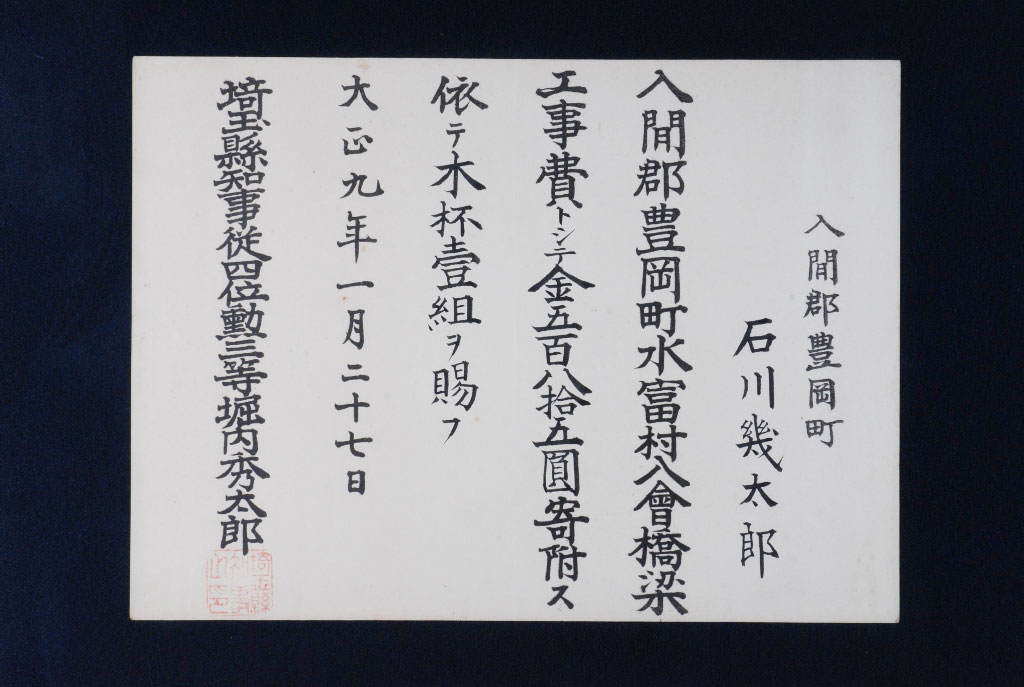 入間郡豊岡町
石川幾太郎
入間郡豊岡町水富村八會橋梁
工事費トシテ金五百八拾五圓寄附ス
依テ木杯壹組ヲ賜フ
大正九年一月二十七日
埼玉縣知事従四位勲三等堀内秀太郎
埼玉縣知事之印